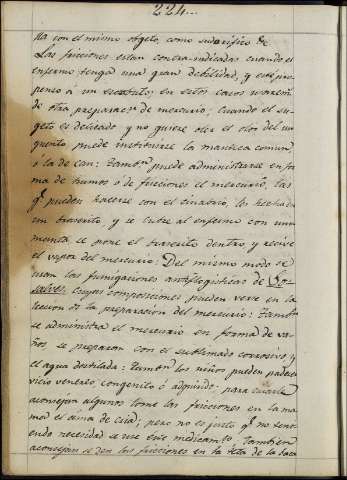 224..
ña con el mismo objeto, como sudorífico &c
Las fricciones estan contra-indicadas cuando el
enfermo tenga una gran debilidad, y esté pro-
penso á un escorbuto; en estos casos
de otra preparacn de mercurio; cuando el su-
geto es delicado y no quiere oler el olor del un-
guento puede instituirse la manteca comun,
ó la de can: tambn puede administrarse en for
ma de humos ó de fricciones el mercurio, las
q.e pueden hacerse con el cinabrio, los hechados
un braserito, y se cubre al enfermo con una
manta se pone el braserito dentro y recive
el vapor del mercurio: Del mismo modo se
usan las fumigaciones antiflogisticas de
salves. Cuyas composiciones pueden verse en la
leccion de la preparación del mercurio: tambn
se administra el mercurio en forma de va-
ños se preparan con el sublimado corrosivo, y
el agua destilada: tambn los niños pueden padecer
vicio venereo, congenito ó adquirido: para curarle
aconsejan algunos tome las fricciones en la ma
no el ama de cria; pero no es justo q.e no teni-
endo necesidad se use este medicamto. tambien
aconsejan se den las fricciones en la teta de la baca